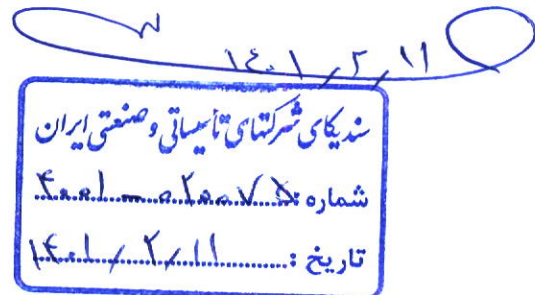 ۱۴۰۱/۲/۱۱
سندیکای شرکتهای تأسیساتی و صنعتی ایران
شماره: ۴۰۰۱-۰۲۰۰۷۵
تاریخ: ۱۴۰۱/۲/۱۱